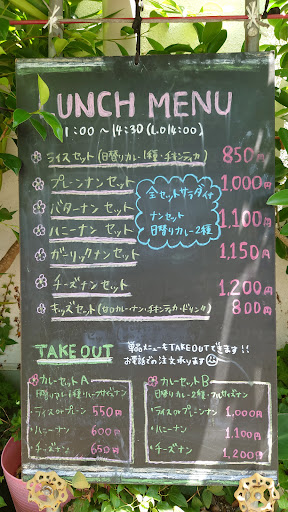 UNCH MENU
11:00~14:30(L.O14:00)
ライスセット(日替りカレー1種・チキンティカ) 850円
プレーンナンセット 1,000円
全セットサラダ付
ナンセット
日替りカレー2種
バターナンセット 1,100円
ハニーナンセット
ガーリックナンセット 1,150円
チーズナンセット 1,200円
キッズセット(甘口カレー・ナン・チキンティカ・ドリンク) 800円
TAKE OUT 単品メニューもTAKE OUTできます!!
お電話での注文承ります
カレーセットA
日替りカレー1種・ハーフサイズナン
・ライス or プレーン 550円
・ハニーナン 600円
・チーズナン 650円
カレーセットB
日替りカレー2種・フルサイズナン
・ライス or プレーンナン 1,000円
・ハニーナン 1,100円
・チーズナン 1,200円